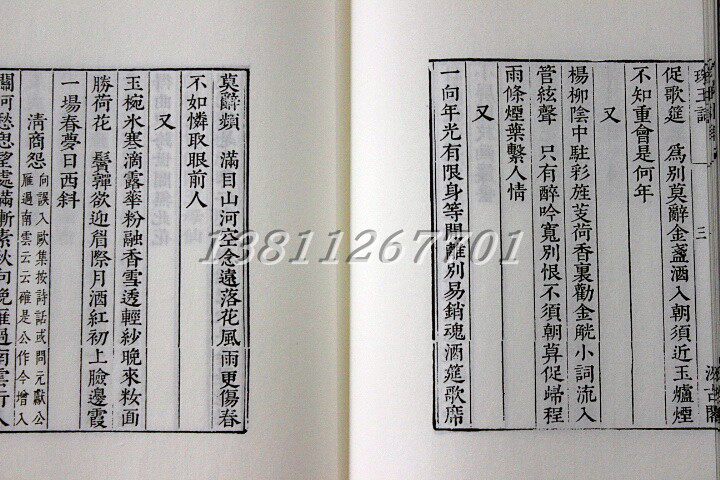 珠玉詞
三
汲古閣
促歌筵　為別莫辭金盞酒入朝須近玉爐煙
不知重會是何年
又
楊柳陰中駐彩旌芰荷香裏勸金觥小詞流入
管絃聲　只有醉吟寬別恨不須朝莫促歸程
雨條煙葉繫人情
又
一向年光有限身等閒離別易銷魂酒筵歌席
莫辭頻　滿目山河空念遠落花風雨更傷春
不如憐取眼前人
又
玉椀氷寒滴露華粉融香雪透輕紗晚來妝面
勝荷花　鬢嚲欲迎眉際月酒紅初上臉邊霞
一場春夢日西斜
清商怨
向誤入歐集按詩話或問元獻公
雁過南雲云云確是公作今增入
關河愁思望處滿漸素秋向晚雁過南雲行人
13811267701